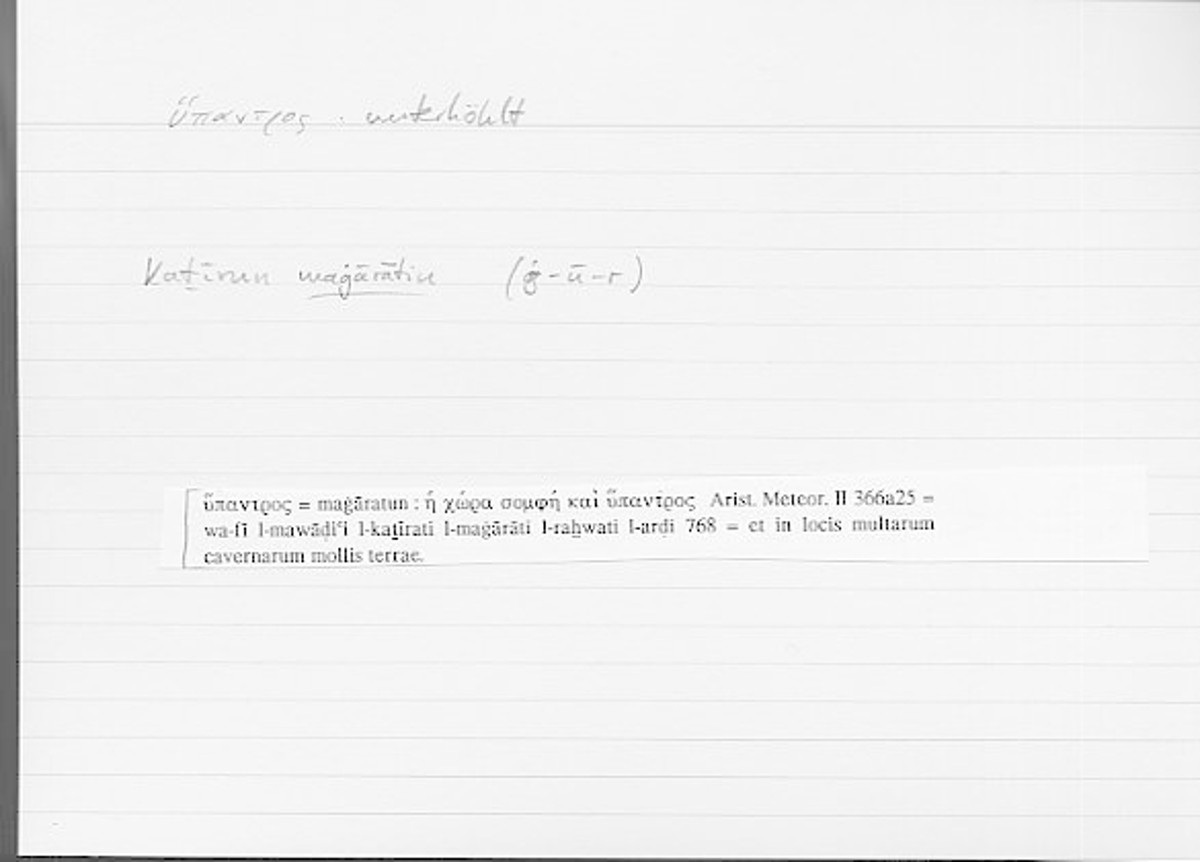 ὕπαντρος · unterhöhlt
Kaṯīrun maġārātin (ġ-ū-r)
ὕπαντρος = maġāratun : ἡ χώρα σομφὴ καὶ ὕπαντρος Arist. Meteor. II 366a25 =
wa-fī l-mawāḍiʿi l-kaṯīrati l-maġārāti l-raḫwati l-arḍi 768 = et in locis multarum
cavernarum mollis terrae.